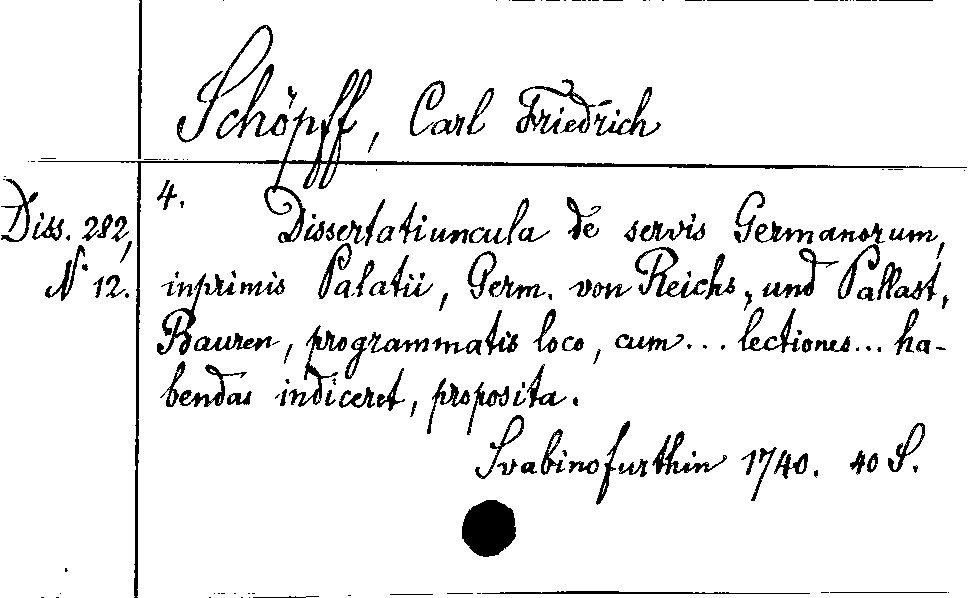 Schöpff, Carl Friedrich
4.
Diss. 282,
N. 12.
Dissertatiuncula de servis Germanorum,
inprimis Palatii, Germ. von Reichs- und Pallast,
Bauren, programmatis loco, cum... lectiones... ha-
bendas indiceret, proposita.
Svabinofurthin 1740. 40 S.